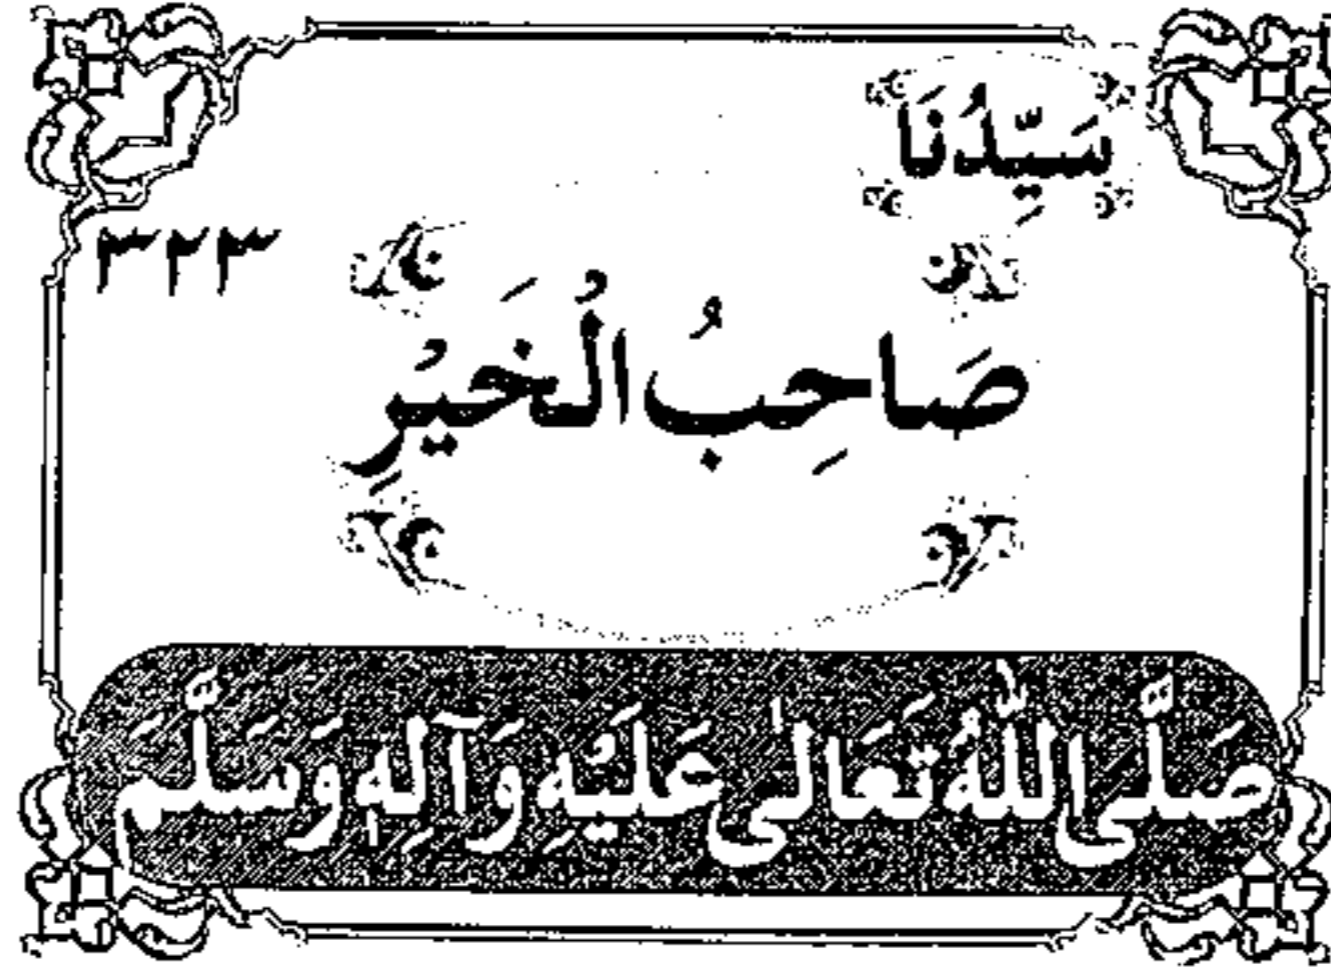 سَيِّدُنَا
٣٢٣
صَاحِبُ الْخَيْرِ
صَلَّى اللّٰهُ تَعَالٰى عَلَيْهِ وَآلِهٖ وَسَلَّمَ